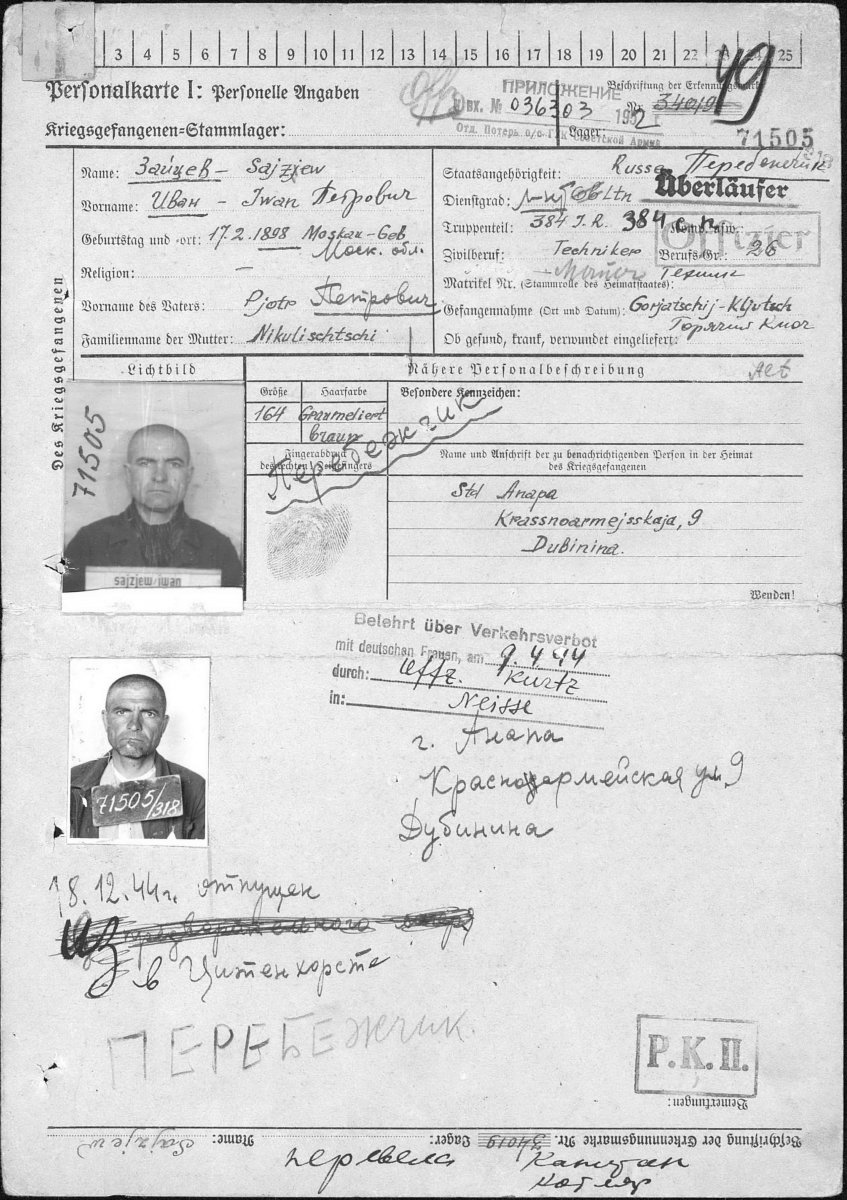 3 4 5 6 7 8 9 10 11 12 13 14 15 16 17 18 19 20 21 22 23 24 25
49
Personalkarte I: Personelle Angaben
ПРИЛОЖЕНИЕ
Beschriftung der Erkennungsmarke
Вх. № 036303 195 г
Nr. 34019
Отд. Потерь о/с Г К Советской Армии
Kriegsgefangenen-Stammlager:
Lager:
71505
Des Kriegsgefangenen
Name: Зайцев - Sajzjew
Vorname: Иван - Iwan Петрович
Geburtstag und -ort: 17.2.1898 Moskau-Geb
Моск. обл.
Religion: —
Vorname des Vaters: Pjotr Петрович
Familienname der Mutter: Nikulischtschi
Staatsangehörigkeit: Russe Перебежчик
Überläufer
Dienstgrad: Obltn
Truppenteil: 384 I.R. 384 с.п. Komp. usw.
Offizier
Zivilberuf: Techniker Berufs-Gr.: 26
Техник
Matrikel Nr. (Stammrolle des Heimatstaates):
Gefangennahme (Ort und Datum): Gorjatschij-Kljutsch
Горячий Ключ
Ob gesund, krank, verwundet eingeliefert:
Lichtbild
Nähere Personalbeschreibung
Alt
Größe
Haarfarbe
Besondere Kennzeichen:
164
Graumeliert
braun
Перебежчик
Fingerabdruck
des rechten Zeigefingers
Name und Anschrift der zu benachrichtigenden Person in der Heimat
des Kriegsgefangenen
Std Anapa
Krassnoarmejsskaja, 9
Dubinina.
71505
sajzjew iwan
Wenden!
Belehrt über Verkehrsverbot
mit deutschen Frauen, am 9.4.44
durch: Uffz. Kurtz
in: Neisse
г. Анапа
Красноармейская ул 9
Дубинина
71505/318
18.12.44г. отпущен
из
в Цитенхорсте
ПЕРЕБЕЖЧИК.
Р.К.П.
Bemerkungen:
Beschriftung der Erkennungsmarke Nr. 34019 Lager: Name: Sajzjew
перевела Капитан
Котляр